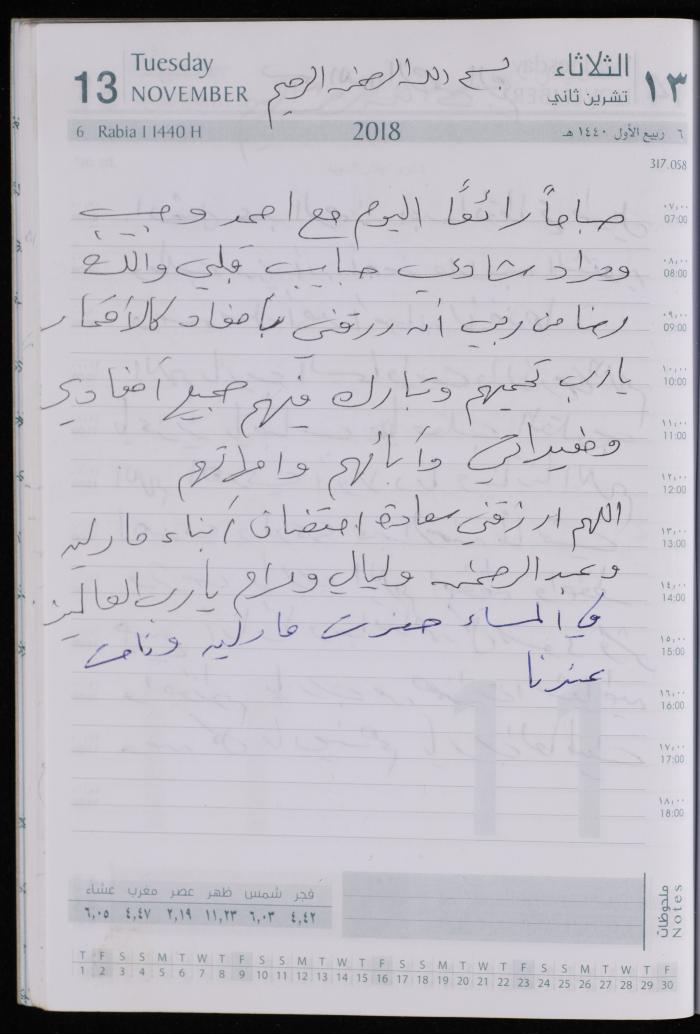 Tuesday
13 NOVEMBER
بسم الله الرحمن الرحيم
الثلاثاء
١٣ تشرين ثاني
6 Rabia I 1440 H
2018
٦ ربيع الأول ١٤٤٠ هـ
317.058
صباحاً رائعًا اليوم مع احمد وحبيب
ومراد شادي حبايب قلبي والله
رضا من ربي أنه رزقني بأحفاد كالأقمار
يارب تحميهم وتبارك فيهم جميع أحفادي
وحفيداتي وأبائهم وامهاتهم
اللهم ارزقني سعادة احتضان أبناء مارلين
وعبد الرحمن وليال ومرام يارب العالمين
في المساء حضرت مارلين ونامت
عندنا
٠٧,٠٠
07:00
٠٨,٠٠
08:00
٠٩,٠٠
09:00
١٠,٠٠
10:00
١١,٠٠
11:00
١٢,٠٠
12:00
١٣,٠٠
13:00
١٤,٠٠
14:00
١٥,٠٠
15:00
١٦,٠٠
16:00
١٧,٠٠
17:00
١٨,٠٠
18:00
11
فجر شمس ظهر عصر مغرب عشاء
٤,٤٢ ٦,٠٣ ١١,٢٣ ٢,١٩ ٤,٤٧ ٦,٠٥
ملحوظات
Notes
T F S S M T W T F S S M T W T F S S M T W T F S S M T W T F
1 2 3 4 5 6 7 8 9 10 11 12 13 14 15 16 17 18 19 20 21 22 23 24 25 26 27 28 29 30